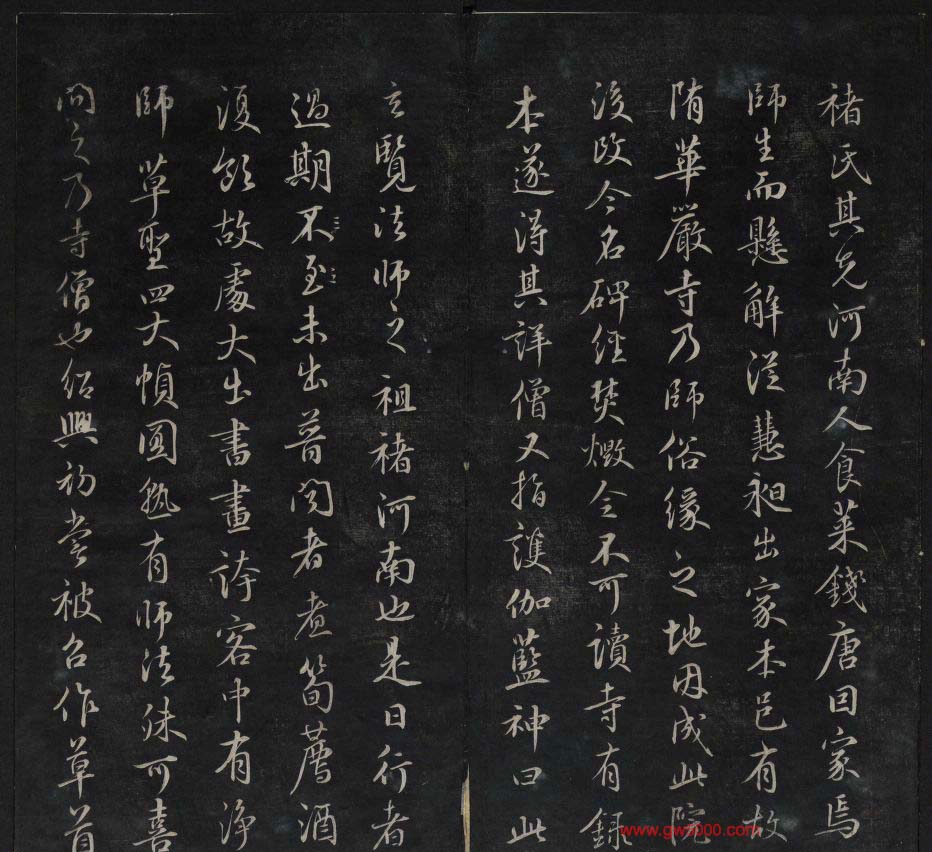 褚氏其先河南人食菜錢唐因家焉
師生而懸解從慧昶出家本邑有故
隋華嚴寺乃師俗緣之地因成此院
後改今名碑經焚燬今不可讀寺有錄
本遂得其詳僧又指護伽藍神曰此
玄覽法師之祖褚河南也是日行者
過期不至未出普閔者煮筍薦酒
復飲故處大出書畫誇客中有淨
師草聖四大幀圓熟有師法殊可喜
問之乃寺僧也紹興初嘗被召作草首
www.gw1000.com